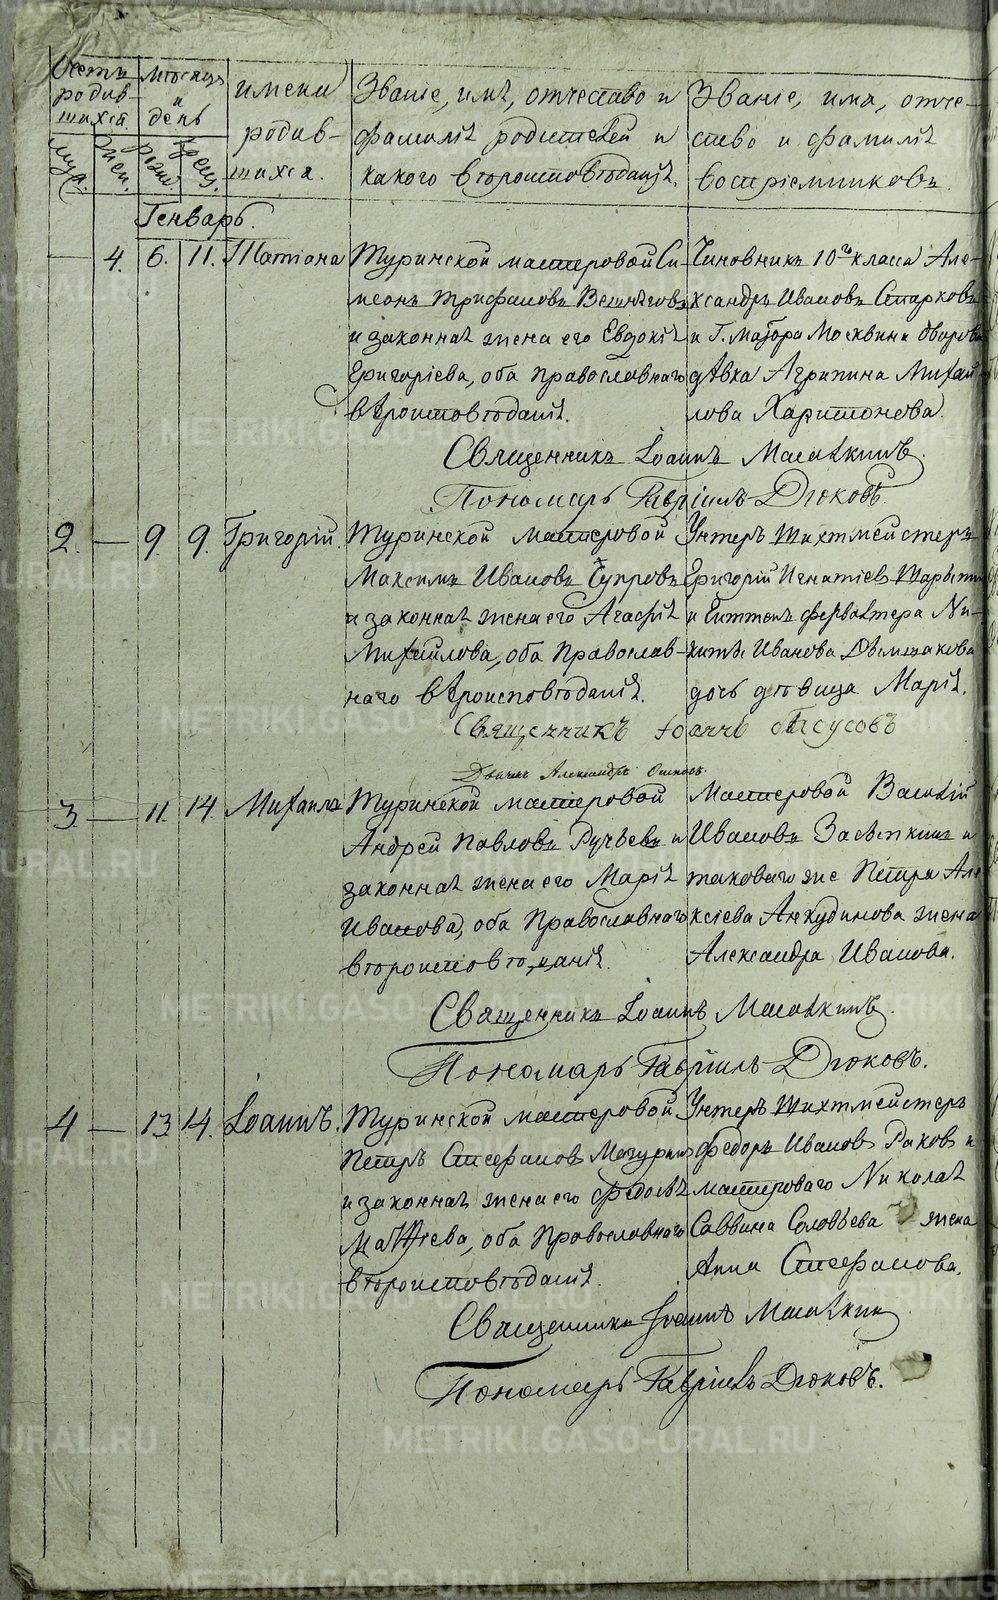 METRIKI.GASO-URAL.RU
Счетъ родив-шихся.
Мѣсяцъ и день
имена родив-шихся.
Званіе, имя, отчество и фамилія родителей и какого вѣроисповѣданія.
Званіе, имя, отче-ство и фамилія воспріемниковъ
муж. жен. рожд. крещ.
Генварь.
— 4. 6. 11. Татіана
Туринской мастеровой Си-
меонъ Трифановъ
и законная жена его Евдокія
Григоріева, оба православнаго
вѣроисповѣданія.
Чиновникъ 10го класса Але-
ксандръ Ивановъ Старковъ
и Г. Маіора Москвина дворова
дѣвка Агрипина Михай-
лова Харитонова.
Священникъ Іоаннъ
Пономарь Гавріилъ Дюковъ.
2. — 9. 9. Григорій.
Туринской мастеровой
Максимъ Ивановъ Чупровъ
и законная жена его Агафія
Михайлова, оба Православ-
наго вѣроисповѣданія.
Унтеръ Шихтмейстеръ
Григорій Игнатіевъ
и Гиттенъ фервалтера Ни-
киты Иванова
дочь дѣвица Марія.
Священникъ Іоаннъ
Дьячекъ Александръ
3. — 11. 14. Михаилъ
Туринской мастеровой
Андрей Павловъ Ручьевъ и
законная жена его Марія
Иванова, оба Православнаго
вѣроисповѣданія.
Мастеровой Василій
Ивановъ Засыпкинъ и
таковаго же Петра Але
ксіева Анкудинова жена
Александра Иванова.
Священникъ Іоаннъ
Пономарь Гавріилъ Дюковъ.
4 — 13 14. Іоаннъ.
Туринской мастеровой
Петръ Стефановъ Мачуринъ
и законная жена его Федосья
Матѳіева, оба Православнаго
вѣроисповѣданія.
Унтеръ Шихтмейстеръ
Федоръ Ивановъ Раковъ и
мастероваго Николая
Саввина Соловьева жена
Анна Стефанова.
Священникъ Іоаннъ
Пономарь Гавріилъ Дюковъ.